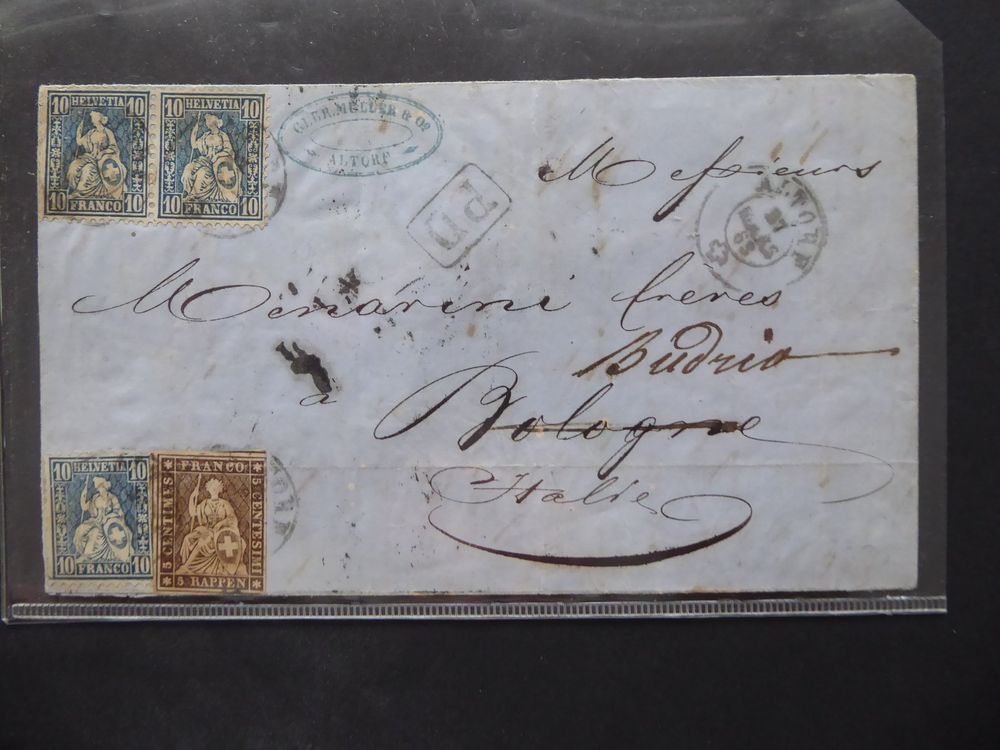 10 HELVETIA 10
10 FRANCO 10
10 HELVETIA 10
10 FRANCO 10
GEBR. MÜLLER & Cº
ALTORF
P.D.
Messieurs
ALTORF
Menarini freres
Budrio
à Bologne
Italie
10 HELVETIA 10
10 FRANCO 10
FRANCO
5 CENTIMES
5 CENTESIMI
5 RAPPEN